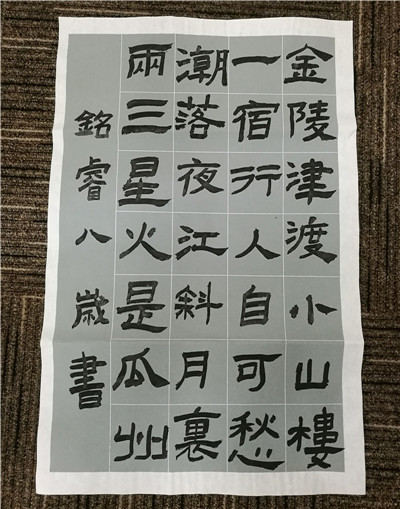 金陵津渡小山樓
一宿行人自可愁
潮落夜江斜月裏
兩三星火是瓜州
銘睿八歲書